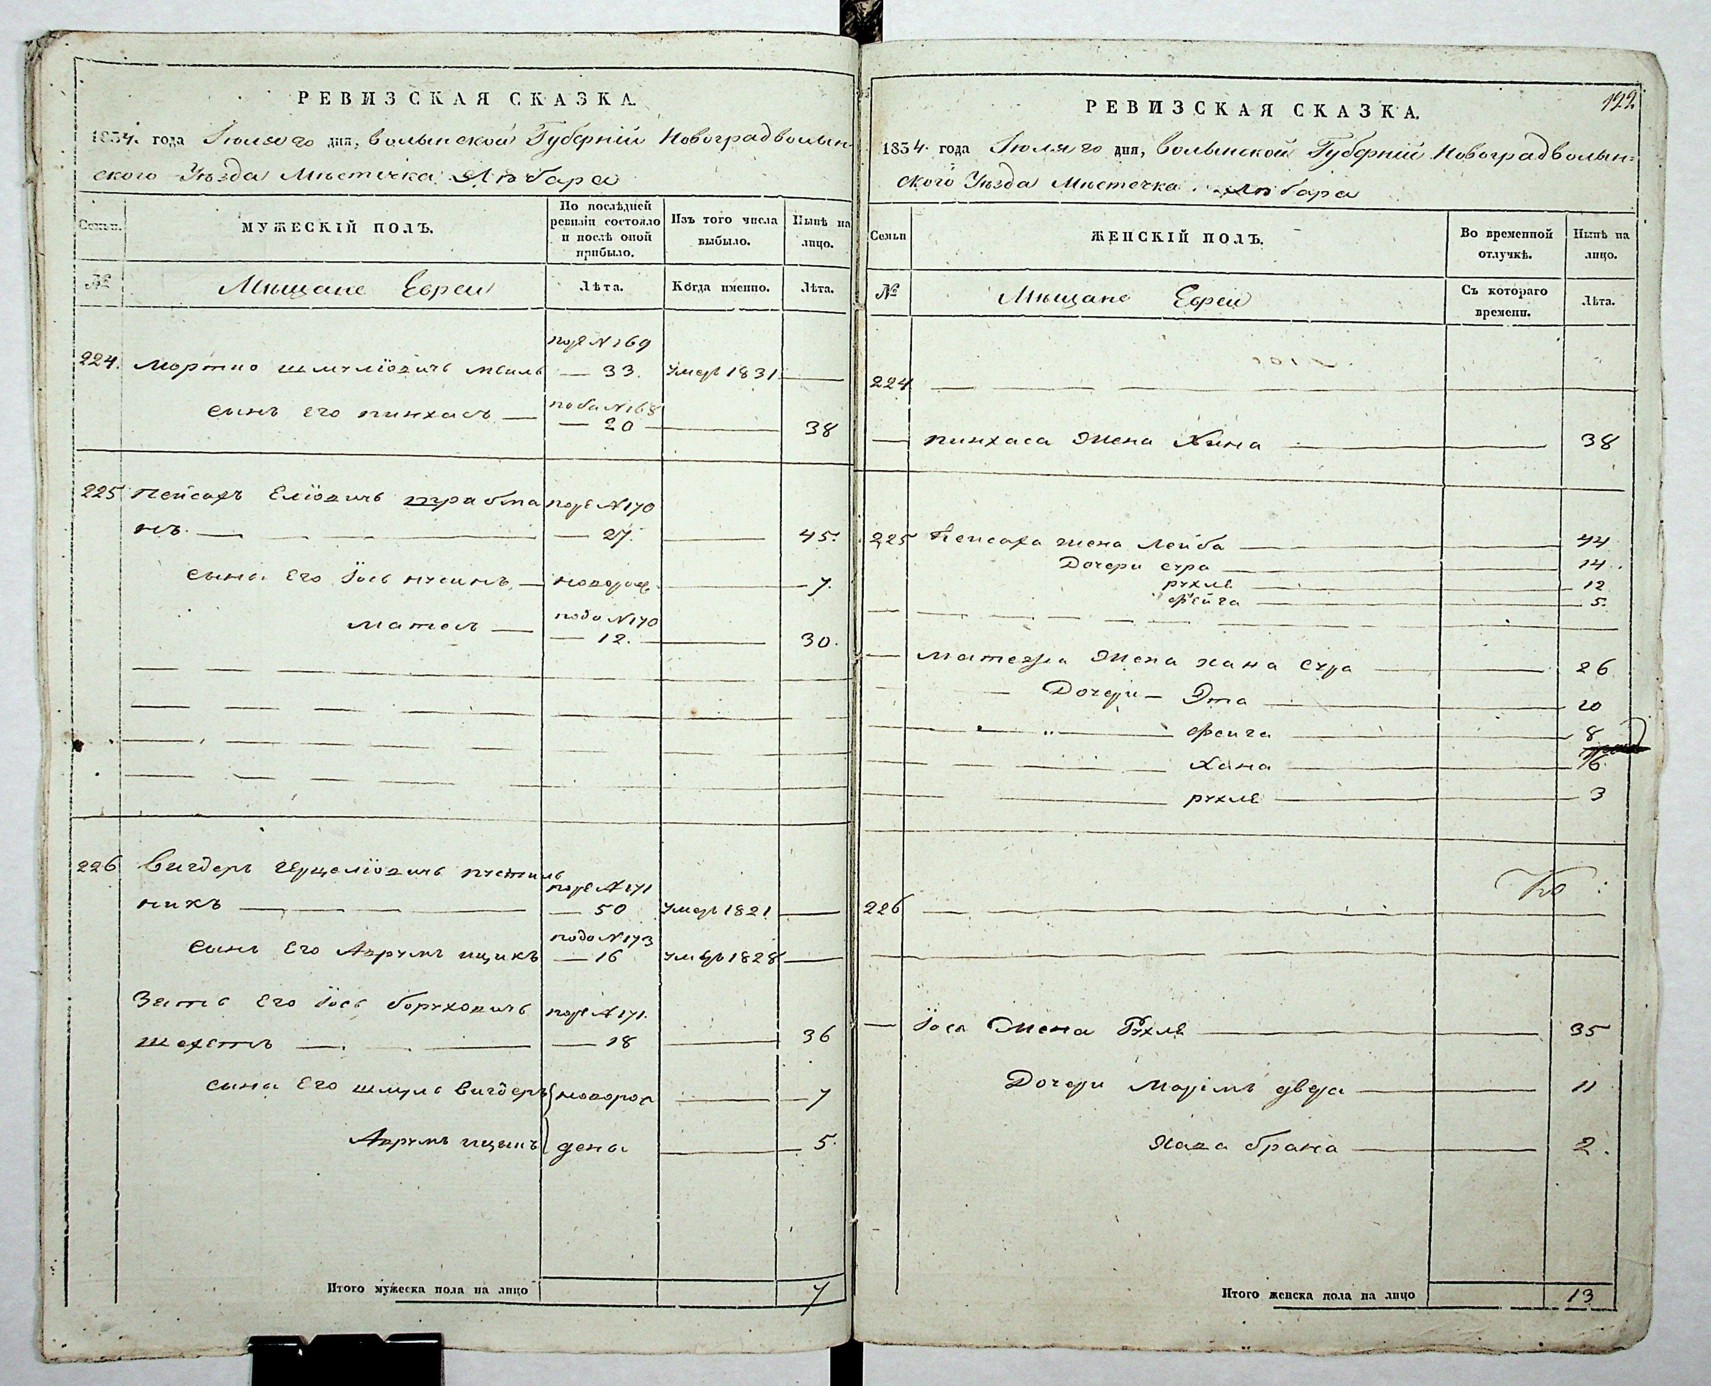 РЕВИЗСКАЯ СКАЗКА.
1834. года Іюля го дня, Волынской Губерніи Новоградволын-
ского Уѣзда Мѣстечка Любара
Семьи.
МУЖЕСКІЙ ПОЛЪ.
По послѣдней
ревизіи состояло
и послѣ оной
прибыло.
Изъ того числа
выбыло.
Нынѣ на
лицо.
№
Мѣщане Евреи
Лѣта.
Когда именно.
Лѣта.
под № 169
224. Мортко Шмулiовичъ 33. умеръ 1831
под № 168
сынъ его Пинхасъ 20 38
225 Пейсахъ Елiовичъ под № 170
нъ. 27. 45.
сына его Iось Нусинъ новорож. 7.
под № 170
Мотель 12. 30.
226 Вигдеръ Герцелiовичъ Пустиль под № 171
никъ 50 умеръ 1821
под № 173
сынъ его Аврумъ Ицикъ 16 умеръ 1828
Зять его Iось Боруховичъ под № 171.
Шохетъ 18 36
сына его Шмуль Вигдеръ новорож 7
Аврумъ Ицикъ дены 5.
Итого мужеска пола на лицо 7
122
РЕВИЗСКАЯ СКАЗКА.
1834. года Іюля го дня, Волынской Губерніи Новоградволын-
ского Уѣзда Мѣстечка Любара
Семьи
ЖЕНСКІЙ ПОЛЪ.
Во временной
отлучкѣ.
Нынѣ на
лицо.
№
Мѣщане Евреи
Съ котораго
времени.
Лѣта.
224
Пинхаса жена Хина 38
225 Пейсаха жена Лейба 44
Дочери Сура 14
Рухля 12
Фейга 5.
Мотеля жена Хана Сура 26
Дочери Эта 10
Фейга 8
Хана 6
Рухля 3
226
Iося жена Рухля 35
Дочери Марiямъ Двера 11
Хава Брана 2.
Итого женска пола на лицо 13